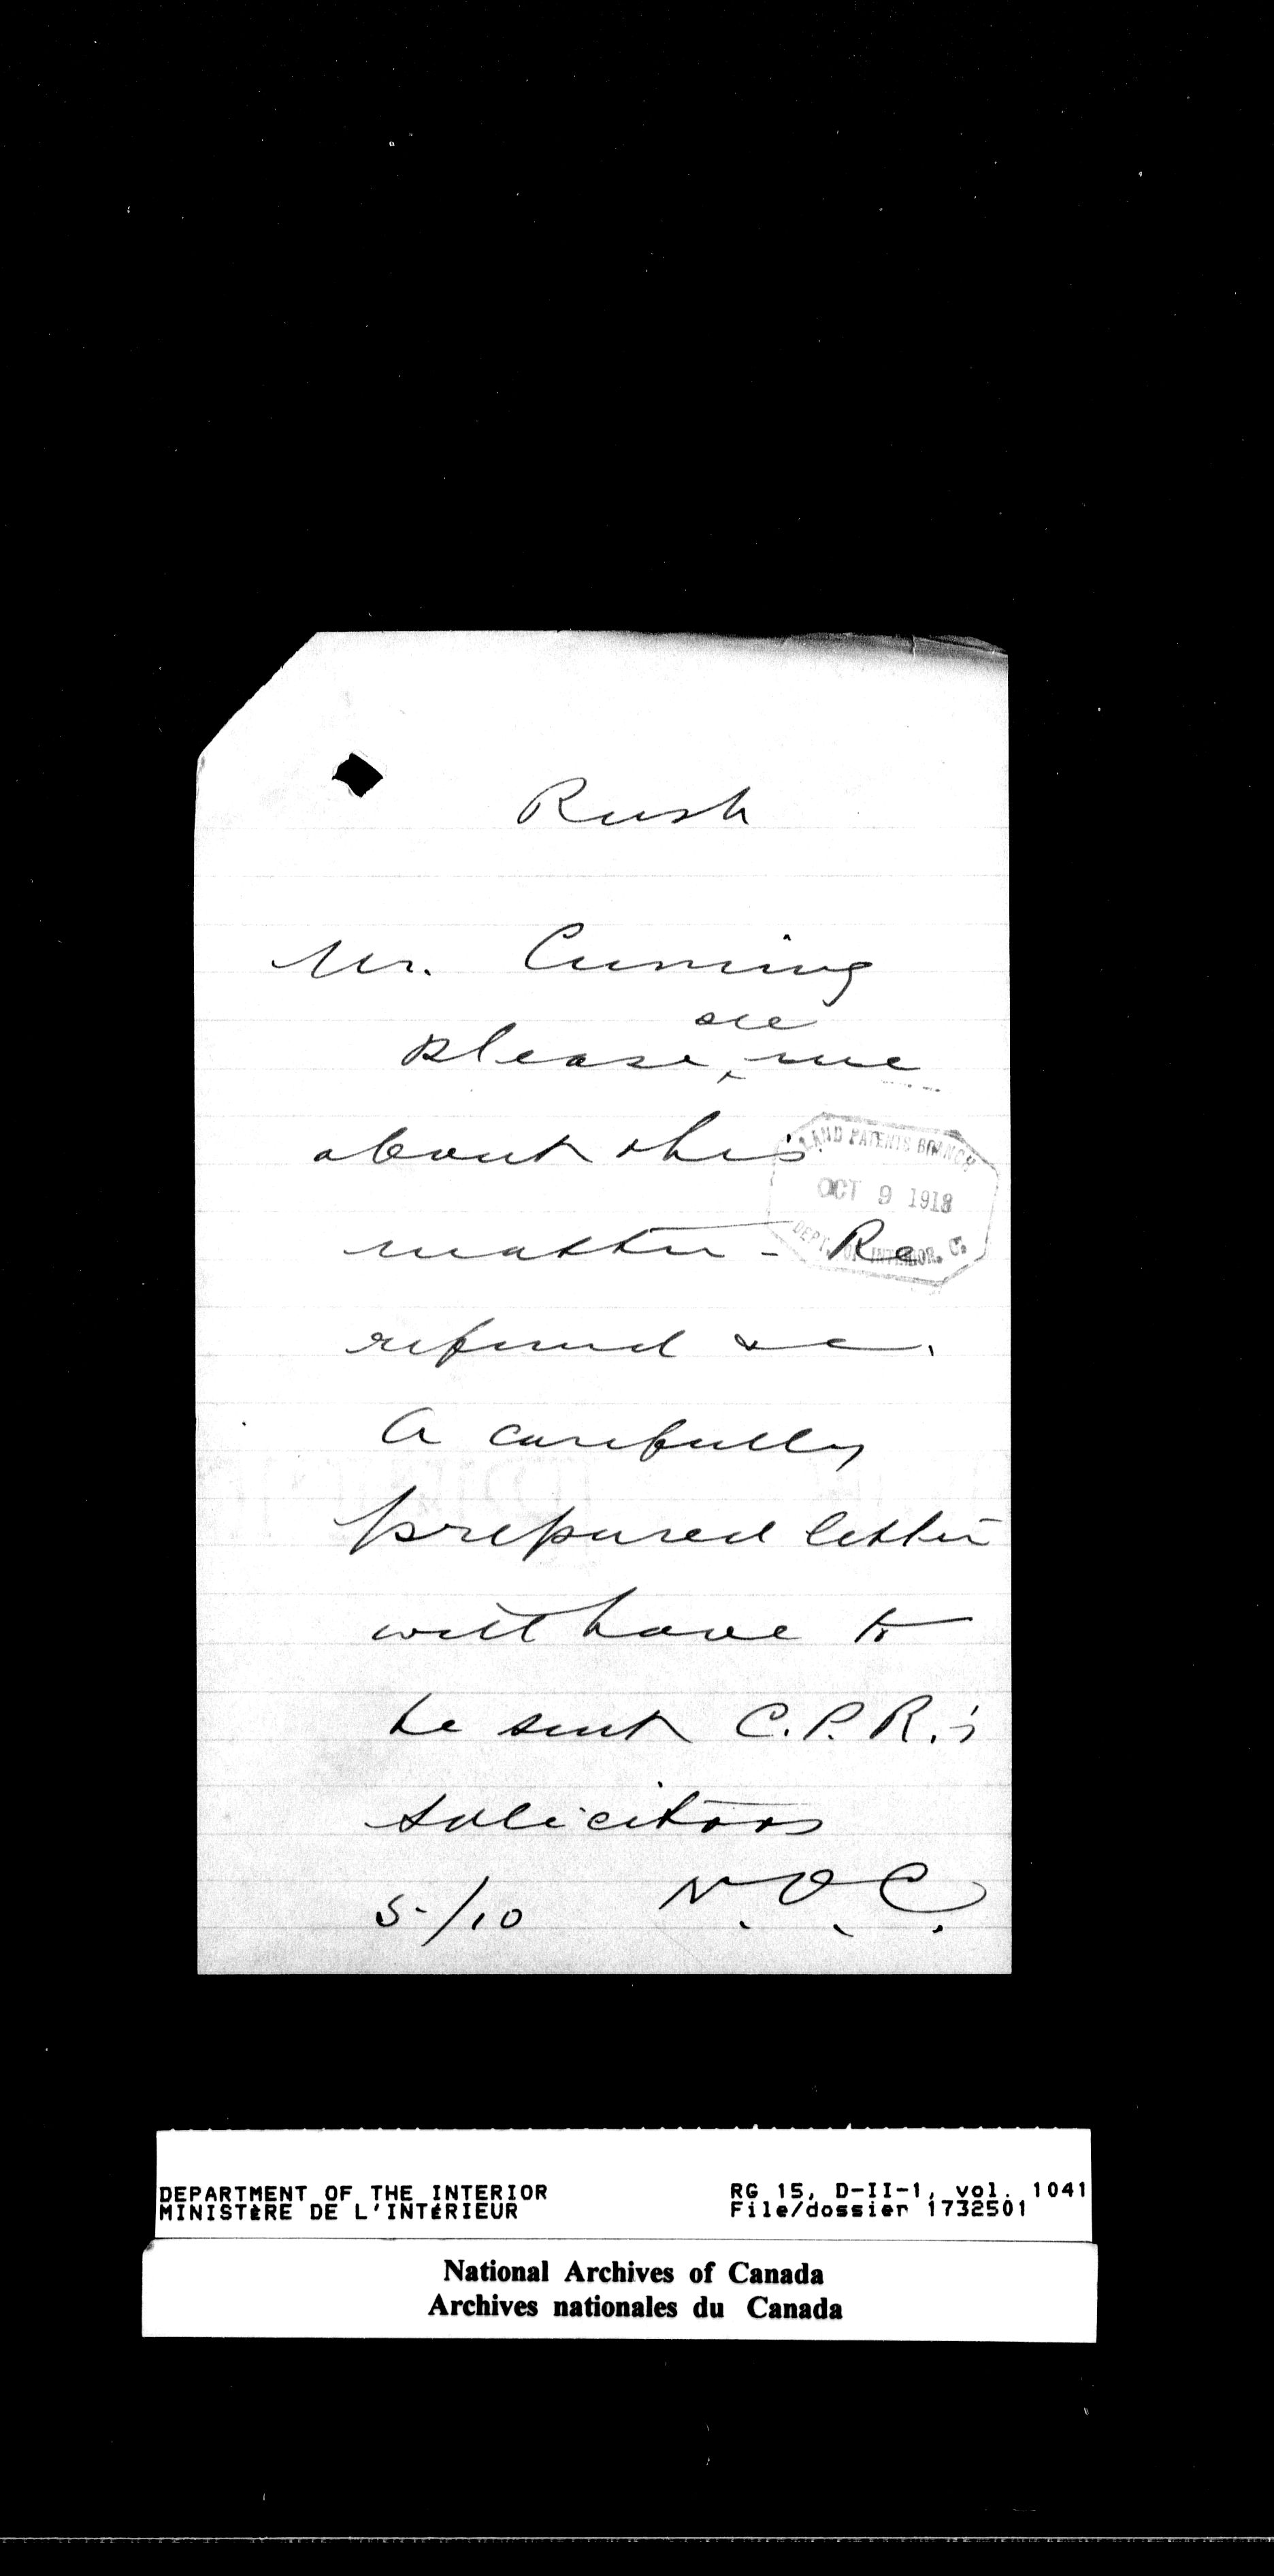 Rush
Mr. Cuming
see
Please ^ me
about this
LAND PATENTS BRANCH
OCT 9 1918
DEPT. OF INTERIOR. C.
matter - Re
refund &c.
A carefully
prepared letter
will have to
be sent C.P.R.'s
solicitors
5-/10 N.O.C.
DEPARTMENT OF THE INTERIOR RG 15, D-II-1, vol. 1041
MINISTÈRE DE L'INTÉRIEUR File/dossier 1732501
National Archives of Canada
Archives nationales du Canada